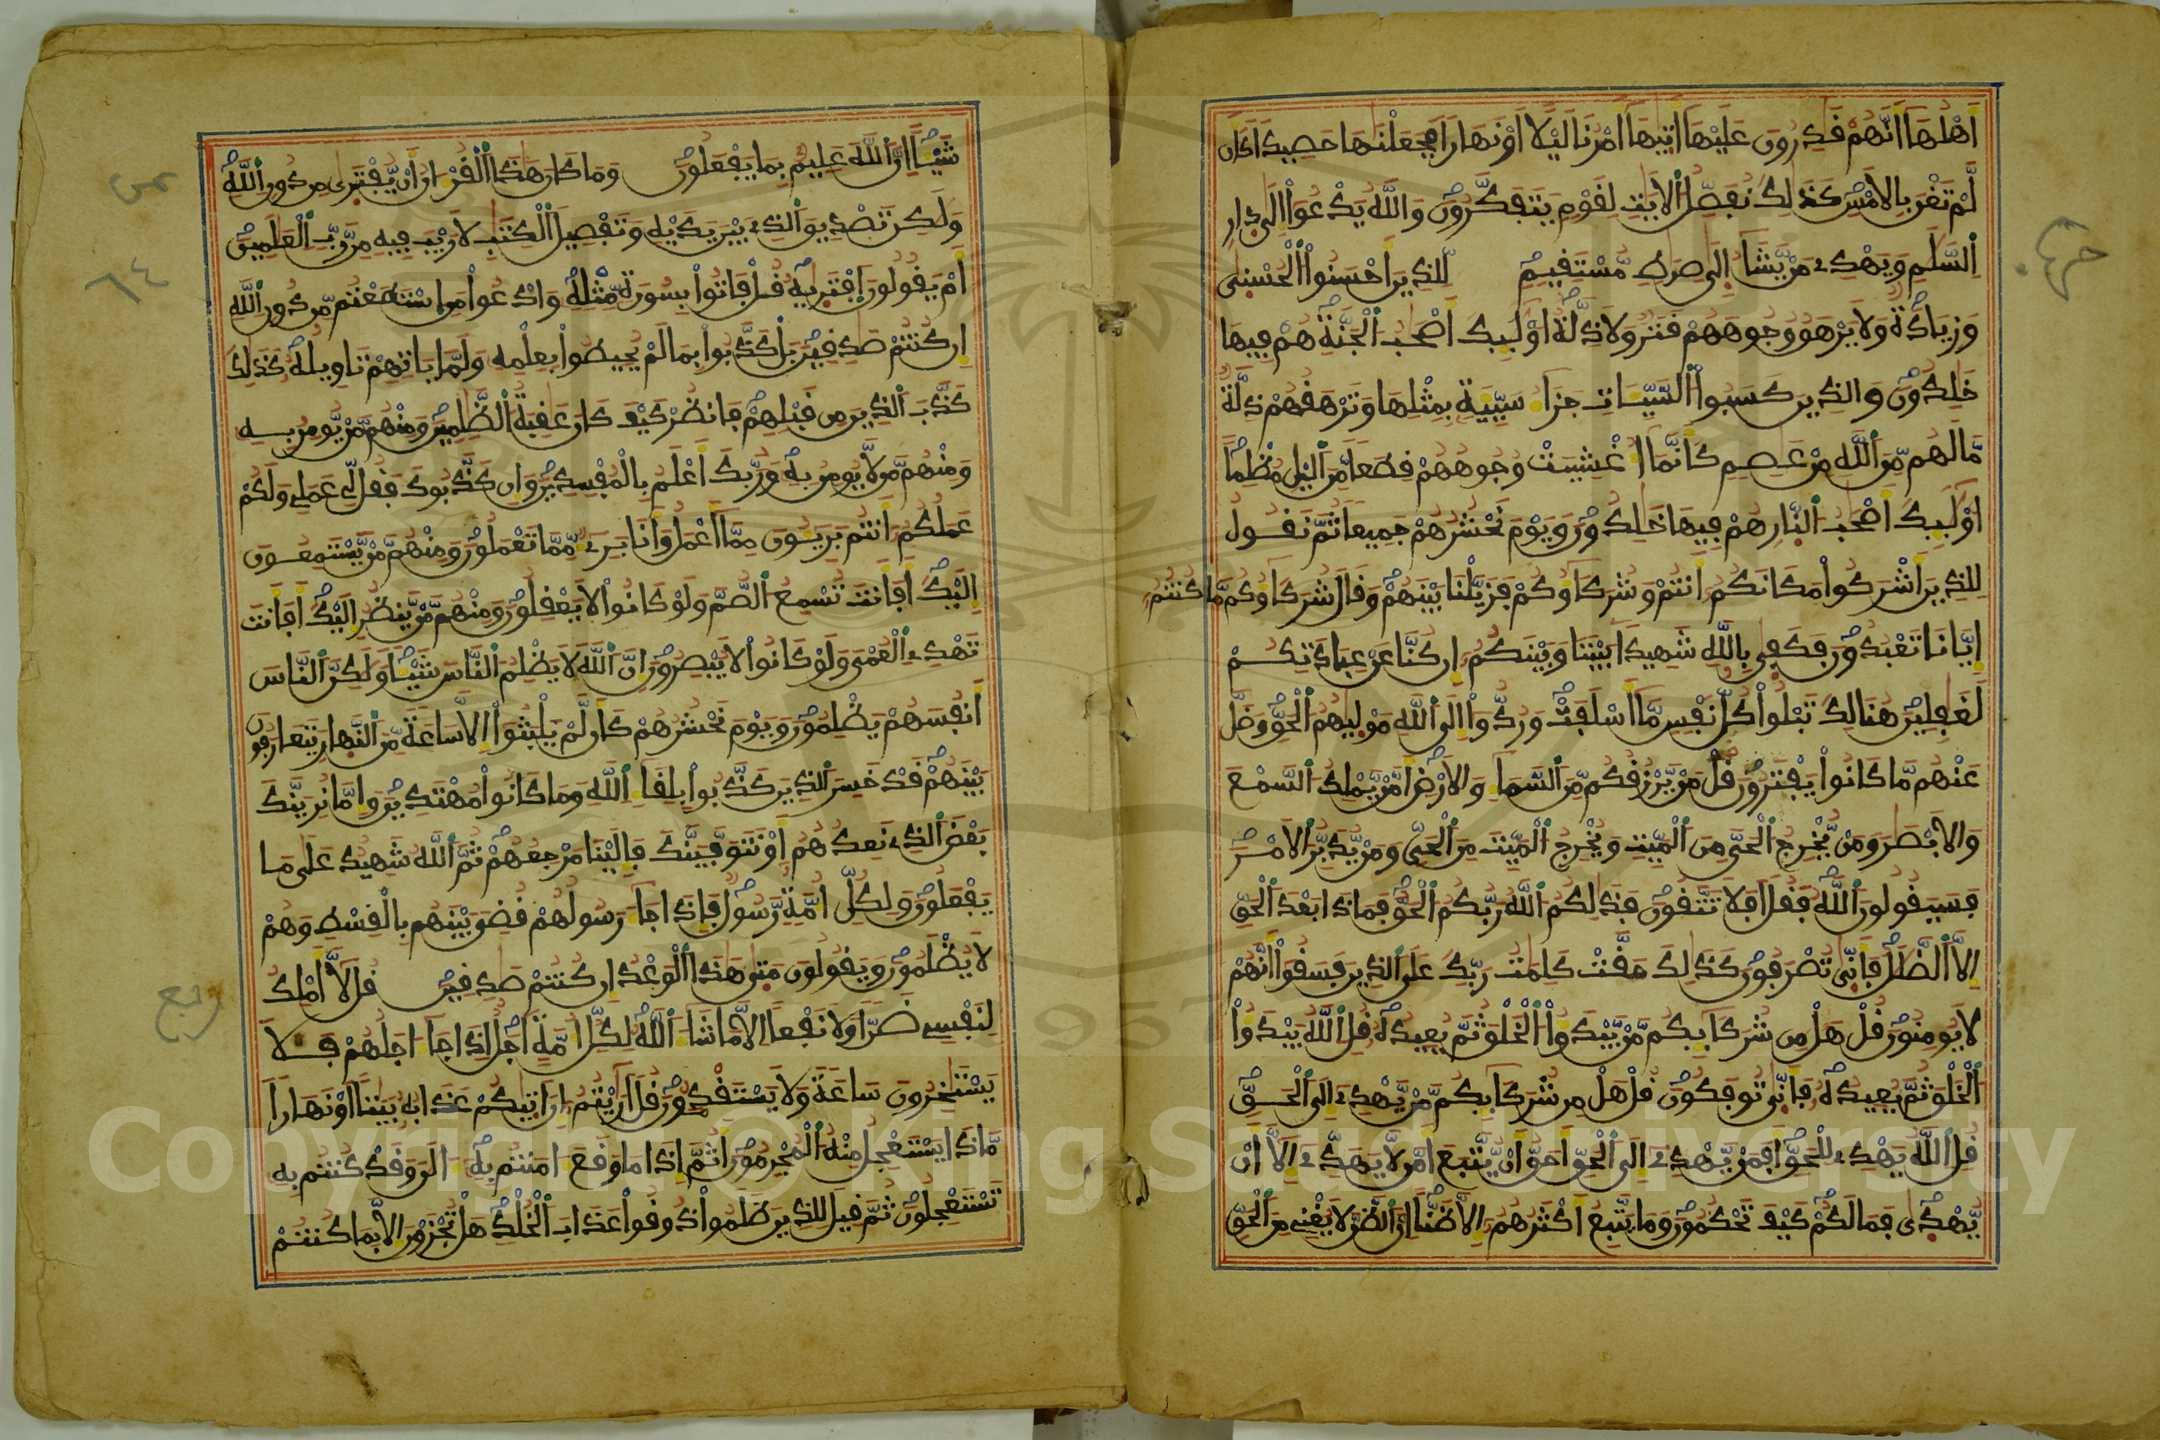 أَهْلُهَا أَنَّهُمْ قَٰدِرُونَ عَلَيْهَا أَتَيٰهَا أَمْرُنَا لَيْلًا اَوْ نَهَارًا فَجَعَلْنَٰهَا حَصِيدًا كَأَن
لَّمْ تَغْنَ بِالَامْسِ كَذَٰلِكَ نُفَصِّلُ اُ۬لَايَٰتِ لِقَوْمٍ يَتَفَكَّرُونَ وَاللَّهُ يَدْعُوٓاْ إِلَىٰ دِارِ
اِ۬لسَّلَٰمِ وَيَهْدِے مَنْ يَّشَآءُ اِلَىٰ صِرَٰطٍ مُّسْتَقِيمٍ لِّلذِينَ أَحْسَنُواْ الْحُسْنَىٰ
وَزِيَادَةٌ وَلَا يَرْهَقُ وُجُوهَهُمْ قَتَرٌ وَلَا ذِلَّةٌ اوْلَٰٓئِكَ أَصْحَٰبُ اُ۬لْجَنَّةِ هُمْ فِيهَا
خَٰلِدُونَ وَالذِينَ كَسَبُواْ السَّيِّـَٔاتِ جَزَآءُ سَيِّئَةٍ بِمِثْلِهَا وَتَرْهَقُهُمْ ذِلَّةٌ
مَّا لَهُم مِّنَ اَ۬للَّهِ مِنْ عَاصِمٍ كَأَنَّمَآ أُغْشِيَتْ وُجُوهُهُمْ قِطَعًا مِّنَ اَ۬ليْلِ مُظْلِمًا
اوْلَٰٓئِكَ أَصْحَٰبُ اُ۬لنّ۪ارِ هُمْ فِيهَا خَٰلِدُونَ وَيَوْمَ نَحْشُرُهُمْ جَمِيعًا ثُمَّ نَقُولُ
لِلذِينَ أَشْرَكُواْ مَكَانَكُمُۥٓ أَنتُمْ وَشُرَكَآؤُكُمْ فَزَيَّلْنَا بَيْنَهُمْ وَقَالَ شُرَكَآؤُهُم مَّا كُنتُمُۥٓ
إِيَّانَا تَعْبُدُونَ فَكَفَىٰ بِاللَّهِ شَهِيدًا بَيْنَنَا وَبَيْنَكُمُۥٓ إِن كُنَّا عَنْ عِبَادَتِكُمْ
لَغَٰفِلِينَ هُنَالِكَ تَبْلُواْ كُلُّ نَفْسٍ مَّآ أَسْلَفَتْ وَرُدُّوٓاْ إِلَى اَ۬للَّهِ مَوْلَيٰهُمُ اُ۬لْحَقِّ وَضَلَّ
عَنْهُم مَّا كَانُواْ يَفْتَرُونَ قُلْ مَنْ يَّرْزُقُكُم مِّنَ اَ۬لسَّمَآءِ وَالَارْضِ أَمَّنْ يَّمْلِكُ اُ۬لسَّمْعَ
وَالَابْصَٰرَ وَمَنْ يُّخْرِجُ اُ۬لْحَيَّ مِنَ اَ۬لْمَيِّتِ وَيُخْرِجُ اُ۬لْمَيِّتَ مِنَ اَ۬لْحَيِّ وَمَنْ يُّدَبِّرُ الَامْرَ
فَسَيَقُولُونَ اَ۬للَّهُ فَقُلَ اَفَلَا تَتَّقُونَ فَذَٰلِكُمُ اُ۬للَّهُ رَبُّكُمُ اُ۬لْحَقُّ فَمَاذَا بَعْدَ اَ۬لْحَقِّ
إِلَّا اَ۬لضَّلَٰلُ فَأَنّ۪ىٰ تُصْرَفُونَ كَذَٰلِكَ حَقَّتْ كَلِمَٰتُ رَبِّكَ عَلَى اَ۬لذِينَ فَسَقُوٓاْ أَنَّهُمْ
لَا يُومِنُونَ قُلْ هَلْ مِن شُرَكَآئِكُم مَّنْ يَّبْدَؤُاْ اُ۬لْخَلْقَ ثُمَّ يُعِيدُهُۥ قُلِ اِ۬للَّهُ يَبْدَؤُاْ
اُ۬لْخَلْقَ ثُمَّ يُعِيدُهُۥ فَأَنّ۪ىٰ تُوفَكُونَ قُلْ هَلْ مِن شُرَكَآئِكُم مَّنْ يَّهْدِےٓ إِلَى اَ۬لْحَقِّ
قُلِ اِ۬للَّهُ يَهْدِے لِلْحَقِّ أَفَمَنْ يَّهْدِےٓ إِلَى اَ۬لْحَقِّ أَحَقُّ أَنْ يُّتَّبَعَ أَمَّن لَّا يَهَدِّےٓ إِلَّآ أَنْ
يُّهْد۪ىٰ فَمَا لَكُمْ كَيْفَ تَحْكُمُونَ وَمَا يَتَّبِعُ أَكْثَرُهُمُۥٓ إِلَّا ظَنًّا اِنَّ اَ۬لظَّنَّ لَا يُغْنِے مِنَ اَ۬لْحَقِّ
شَيْـًٔا اِنَّ اَ۬للَّهَ عَلِيمٌ بِمَا يَفْعَلُونَ وَمَا كَانَ هَٰذَا اَ۬لْقُرْءَانُ أَنْ يُّفْتَر۪ىٰ مِن دُونِ اِ۬للَّهِ
وَلَٰكِن تَصْدِيقَ اَ۬لذِے بَيْنَ يَدَيْهِ وَتَفْصِيلَ اَ۬لْكِتَٰبِ لَا رَيْبَ فِيهِ مِن رَّبِّ اِ۬لْعَٰلَمِينَ
أَمْ يَقُولُونَ اَ۪فْتَر۪يٰهُ قُلْ فَاتُواْ بِسُورَةٍ مِّثْلِهِۦ وَادْعُواْ مَنِ اِ۪سْتَطَعْتُم مِّن دُونِ اِ۬للَّهِ
إِن كُنتُمْ صَٰدِقِينَ بَلْ كَذَّبُواْ بِمَا لَمْ يُحِيطُواْ بِعِلْمِهِۦ وَلَمَّا يَاتِهِمْ تَاوِيلُهُۥ كَذَٰلِكَ
كَذَّبَ اَ۬لذِينَ مِن قَبْلِهِمْ فَانظُرْ كَيْفَ كَانَ عَٰقِبَةُ اُ۬لظَّٰلِمِينَ وَمِنْهُم مَّنْ يُّومِنُ بِهِ
وَمِنْهُم مَّن لَّا يُومِنُ بِهِۦ وَرَبُّكَ أَعْلَمُ بِالْمُفْسِدِينَ وَإِن كَذَّبُوكَ فَقُل لِّے عَمَلِے وَلَكُمْ
عَمَلُكُمُۥٓ أَنتُم بَرِيٓـُٔونَ مِمَّآ أَعْمَلُ وَأَنَا بَرِےٓءٌ مِّمَّا تَعْمَلُونَ وَمِنْهُم مَّنْ يَّسْتَمِعُونَ
إِلَيْكَ أَفَأَنتَ تُسْمِعُ اُ۬لصُّمَّ وَلَوْ كَانُواْ لَا يَعْقِلُونَ وَمِنْهُم مَّنْ يَّنظُرُ إِلَيْكَ أَفَأَنتَ
تَهْدِے اِ۬لْعُمْيَ وَلَوْ كَانُواْ لَا يُبْصِرُونَ إِنَّ اَ۬للَّهَ لَا يَظْلِمُ اُ۬لنَّاسَ شَيْـًٔا وَلَٰكِنَّ اَ۬لنَّاسَ
أَنفُسَهُمْ يَظْلِمُونَ وَيَوْمَ نَحْشُرُهُمْ كَأَن لَّمْ يَلْبَثُوٓاْ إِلَّا سَاعَةً مِّنَ اَ۬لنَّه۪ارِ يَتَعَارَفُونَ
بَيْنَهُمْ قَدْ خَسِرَ اَ۬لذِينَ كَذَّبُواْ بِلِقَآءِ اِ۬للَّهِ وَمَا كَانُواْ مُهْتَدِينَ وَإِمَّا نُرِيَنَّكَ
بَعْضَ اَ۬لذِے نَعِدُهُمُۥٓ أَوْ نَتَوَفَّيَنَّكَ فَإِلَيْنَا مَرْجِعُهُمْ ثُمَّ اَ۬للَّهُ شَهِيدٌ عَلَىٰ مَا
يَفْعَلُونَ وَلِكُلِّ أُمَّةٍ رَّسُولٌ فَإِذَا جَآءَ رَسُولُهُمْ قُضِيَ بَيْنَهُم بِالْقِسْطِ وَهُمْ
لَا يُظْلَمُونَ وَيَقُولُونَ مَت۪ىٰ هَٰذَا اَ۬لْوَعْدُ إِن كُنتُمْ صَٰدِقِينَ قُل لَّآ أَمْلِكُ
لِنَفْسِے ضَرًّا وَلَا نَفْعًا اِلَّا مَا شَآءَ اَ۬للَّهُ لِكُلِّ أُمَّةٍ اَجَلٌ اِذَا جَآءَ اجَلُهُمْ فَلَا
يَسْتَٰخِرُونَ سَاعَةً وَلَا يَسْتَقْدِمُونَ قُلَ اَرَٰيْتُمُۥٓ إِنَ اَت۪يٰكُمْ عَذَابُهُۥ بَيَٰتًا اَوْ نَهَارًا
مَّاذَا يَسْتَعْجِلُ مِنْهُ اُ۬لْمُجْرِمُونَ أَثُمَّ إِذَا مَا وَقَعَ ءَامَنتُم بِهِۦٓ ءَآلَٰنَ وَقَدْ كُنتُم بِهِۦ
تَسْتَعْجِلُونَ ثُمَّ قِيلَ لِلذِينَ ظَلَمُواْ ذُوقُواْ عَذَابَ اَ۬لْخُلْدِ هَلْ تُجْزَوْنَ إِلَّا بِمَا كُنتُمْ
٦٤
ربع
Copyright © King Saud University
1957